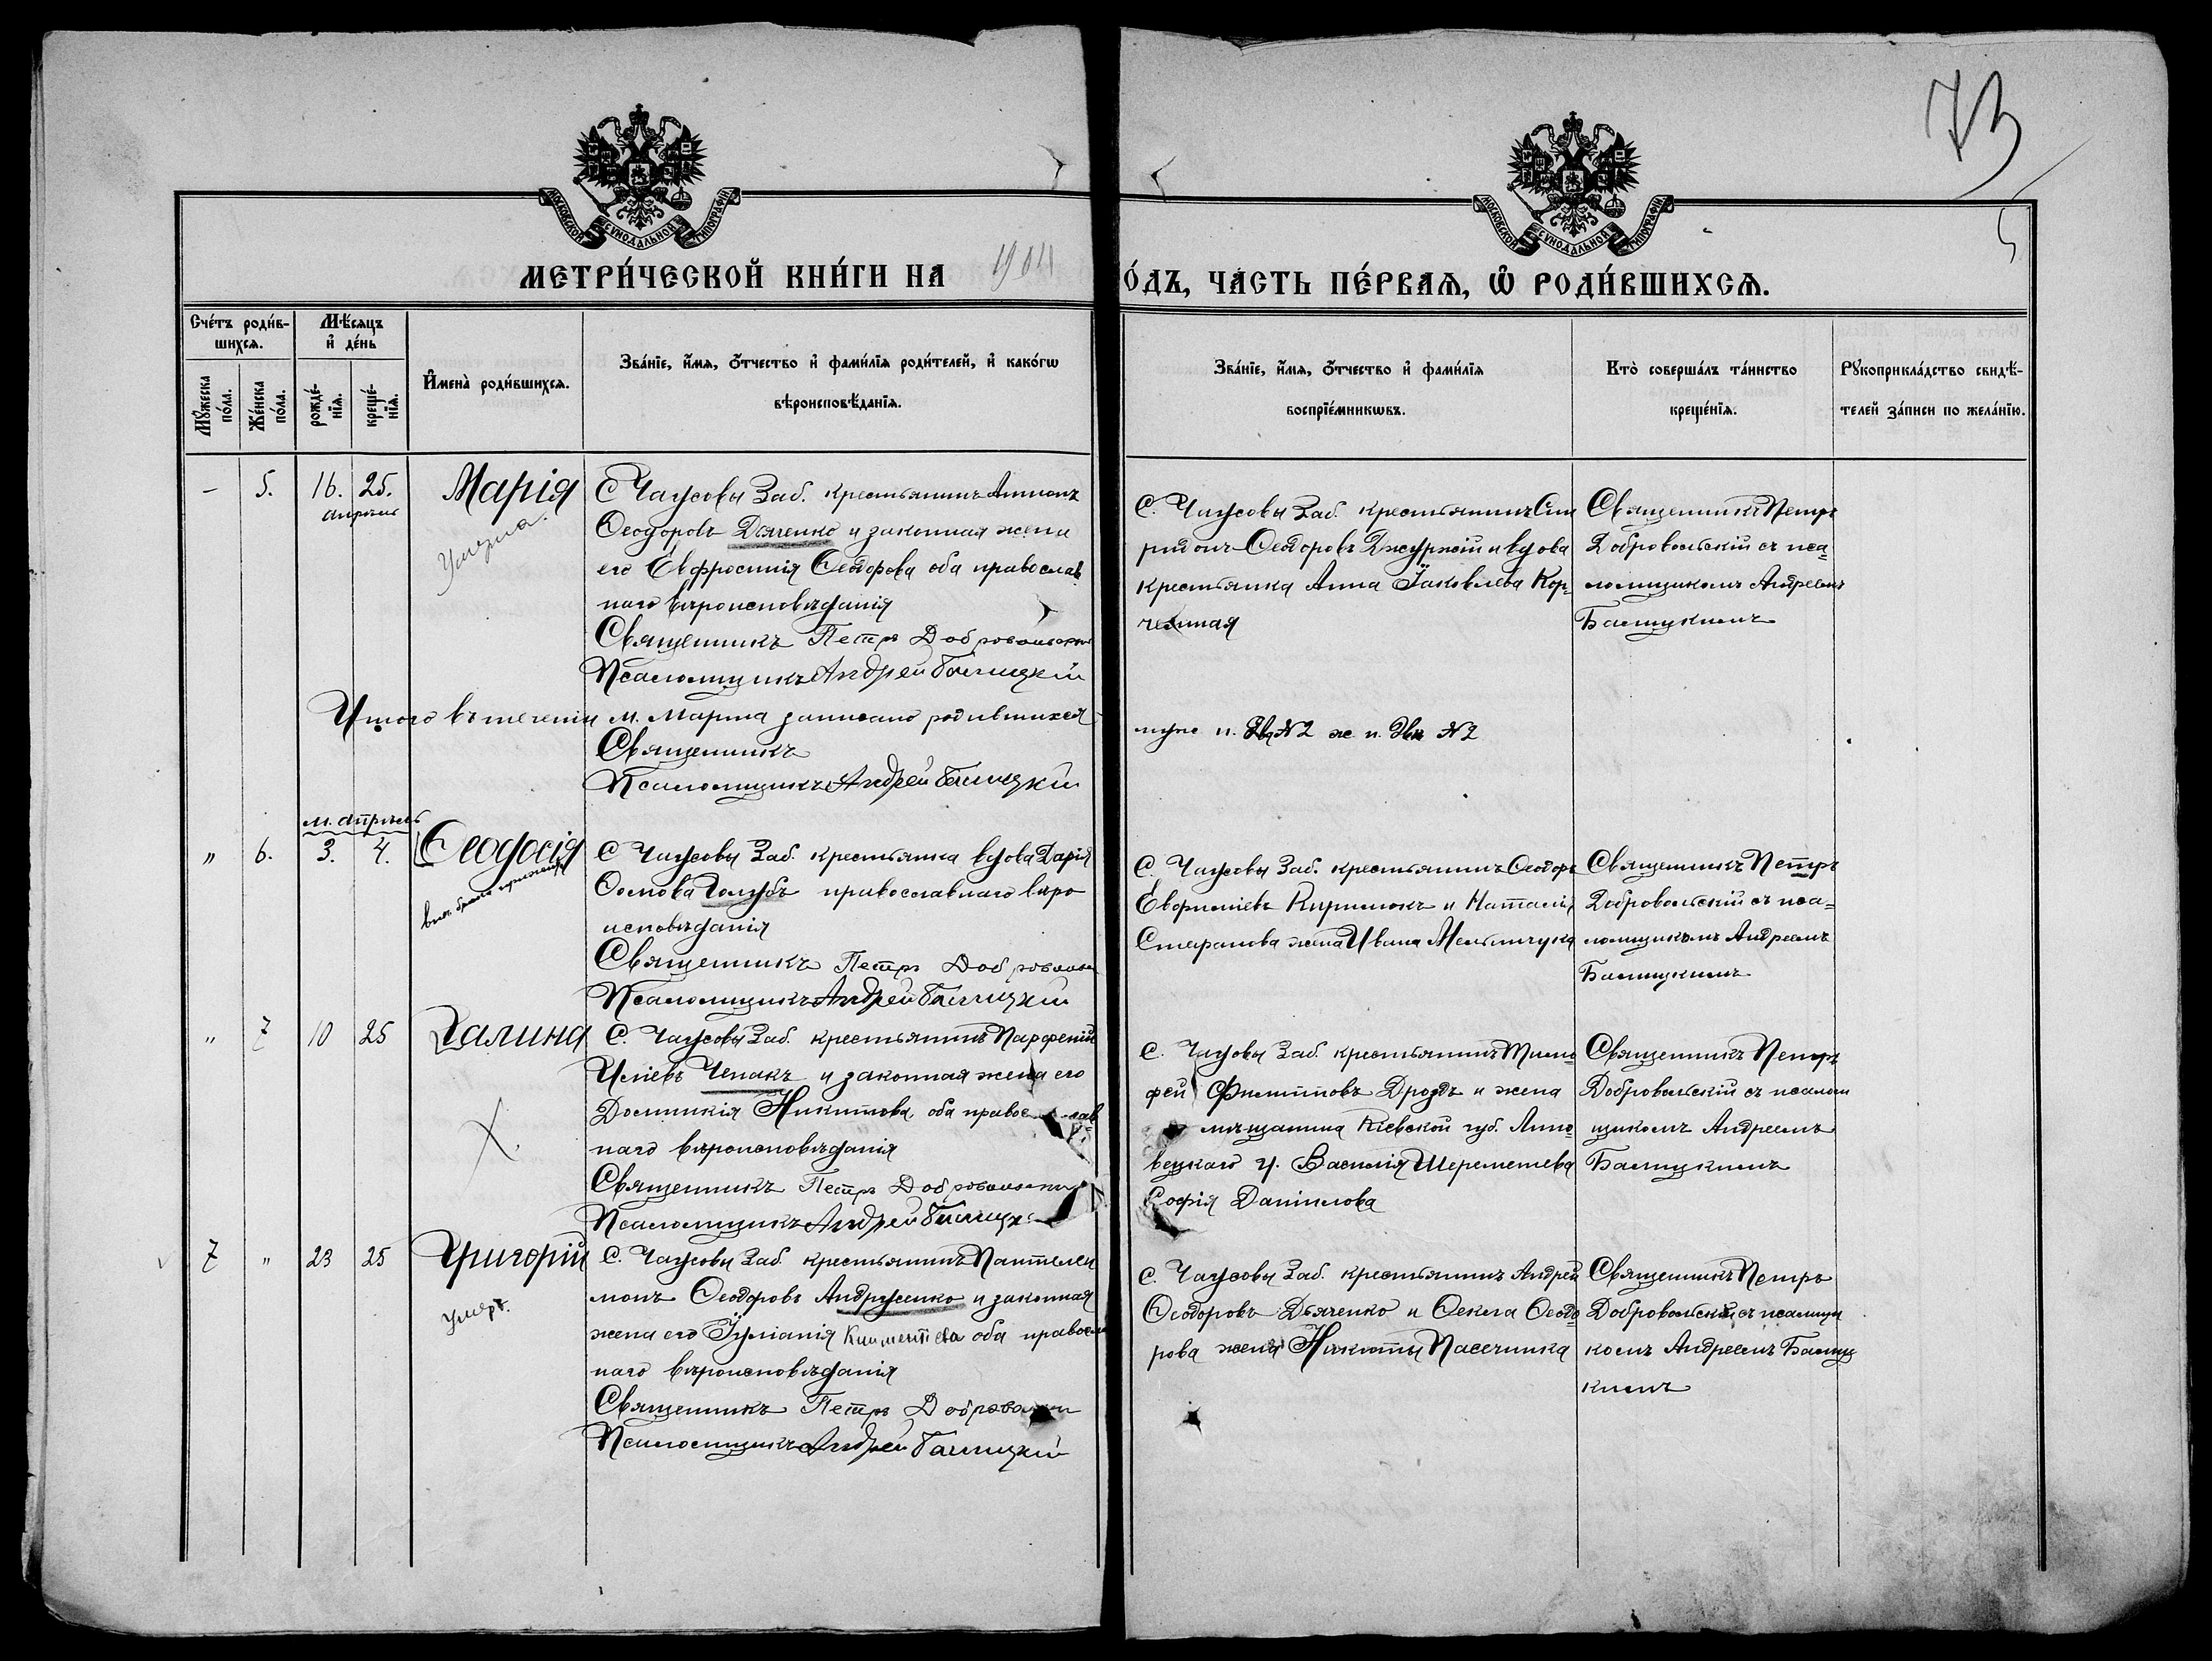 73
МОСКОВСКОЙ СѴНОДАЛЬНОЙ ТИПОГРАФІИ
МОСКОВСКОЙ СѴНОДАЛЬНОЙ ТИПОГРАФІИ
МЕТРИ́ЧЕСКОЙ КНИ́ГИ НА 1904
О́ДЪ, ЧА́СТЬ ПЕ́РВАѦ, Ѽ РОДИ́ВШИХСѦ.
Сче́тъ роди́в-
шихсѧ.
Мꙋ́жеска
по́ла.
Же́нска
по́ла.
Мѣ́сѧцъ
и҆ де́нь
рожде́-
нїѧ.
креще́-
нїѧ.
И҆мена̀ роди́вшихсѧ.
Зва́нїе, и҆́мѧ, ѻ҆́тчество и҆ фами́лїѧ роди́телей, и҆ како́гѡ
вѣроисповѣ́данїѧ.
Зва́нїе, и҆́мѧ, ѻ҆́тчество и҆ фами́лїѧ
воспрїе́мникѡвъ.
Кто̀ соверша́лъ та́инство
креще́нїѧ.
Рꙋкоприкла́дство свидѣ́-
телей за́писи по жела́нїю.
– 5. 16. 25. Марія
апреля
Умерла.
С Чаусовы Заб. крестьянинъ Антонъ
Ѳеодоровъ Дяченко и законная жена
его Евфросинія Ѳеодорова оба православ
наго вѣроисповѣданія
Священникъ Петръ Добровольскій
Псаломщикъ Андрей Балицкій
С. Чаусовы Заб. крестьянинъ Спи
ридонъ Ѳеодоровъ Джуржій и вдова
крестьянка Анна Іаковлева Кор-
чемная
Священникъ Петръ
Добровольскій съ пса=
ломщикомъ Андреемъ
Балицкимъ
Итого въ теченіи м. Марта записано родившихся
муж п. Два №2 ж. п. Двѣ №2
Священникъ
Псаломщикъ Андрей Балицкій
м. Апрѣль
" 6. 3. 4. Ѳеодосія
внѣ брака прижита
С Чаусовы Заб. крестьянка вдова Дарія
Голубъ православнаго вѣро
исповѣданія
Священникъ Петръ Добровольск
Псаломщикъ Андрей Балицкій
С. Чаусовы Заб. крестьянинъ Ѳеодоръ
Кирилюкъ и Наталія
жена Ивана Мельничука
Священникъ Петръ
Добровольскій съ пса=
ломщикомъ Андреемъ
Балицкимъ
" 7 10 25 Галина
Х.
С. Чаусовы Заб. крестьянинъ Парфеній
Иліевъ Чепакъ и законная жена его
Домникія Никитова оба православ
наго вѣроисповѣданія
Священникъ Петръ Добровольскій
Псаломщикъ Андрей Балицк
С. Чаусовы Заб. крестьянинъ Тимо
фей Филипповъ Дроздъ и жена
мѣщанина Кіевской губ. Липо
вецкаго у. Василія Шереметева
Софія Даніилова
Священникъ Петръ
Добровольскій съ псалом
щикомъ Андреемъ
Балицкимъ
7 " 23 25 Григорій
умеръ.
С. Чаусовы Заб. крестьянинъ Пантелей
монъ Ѳеодоровъ Андрусенко и законная
жена его Іуліанія Климентіева оба православ
наго вѣроисповѣданія
Священникъ Петръ Добровольскій
Псаломщикъ Андрей Балицкій
С. Чаусовы Заб. крестьянинъ Андрей
Ѳеодоровъ Дьяченко и Ѳекла Ѳеодо
рова жена Никиты Пасечника
Священникъ Петръ
Добровольскій съ псаломщи
комъ Андреемъ Балиц
кимъ